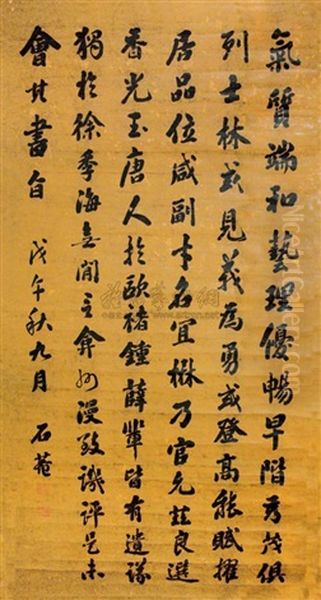 氣質端和藝理優暢早階秀茂俱
列士林或見義為勇或登高能賦擢
居品位咸副才名宜楙乃官允茲良選
香光玉唐人於歐褚鍾薛輩皆有遺議
獨於徐季海無閒言弇州漫致譏評是未
會其書旨 戊午秋九月 石菴